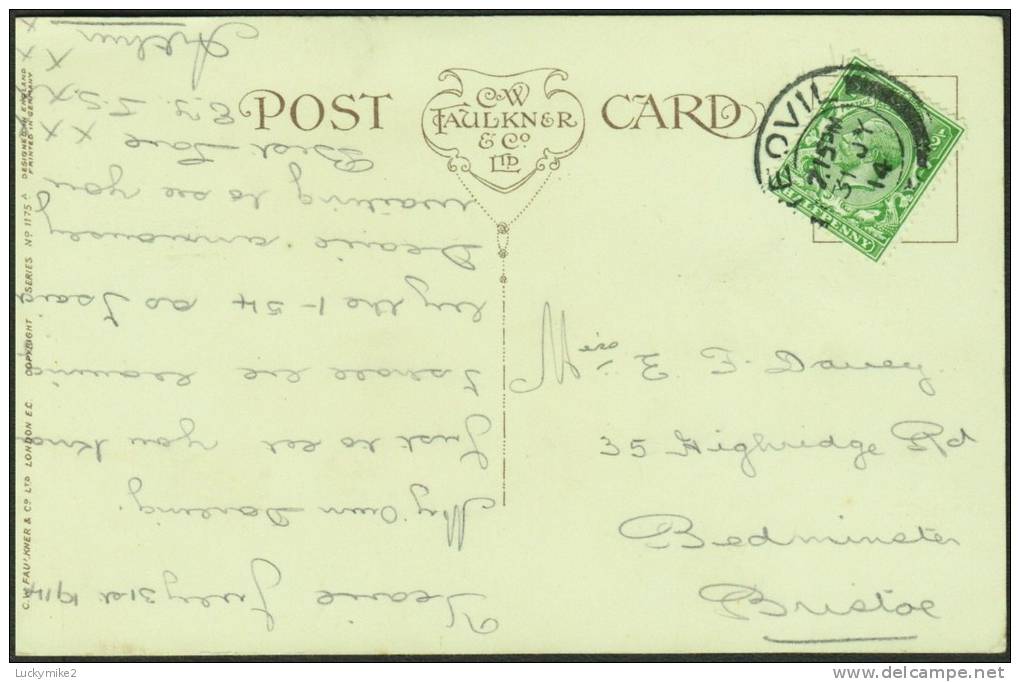 POST CARD
C.W. FAULKNER & CO LTD
YEOVIL
2.15PM
31 JY
14
HALFPENNY
Miss E. F. Davey.
35 Highridge Rd
Bedminster
Bristol
Yeovil July 31st 1914
My Own Darling.
Just to let you know
I shall be leaving
by the 1-54 so
Dearie
waiting to see you
Best Love
Arthur
C.W. FAULKNER & CO LTD LONDON E.C. COPYRIGHT SERIES No 1175 A DESIGNED IN ENGLAND
PRINTED IN GERMANY
Luckymike2
delcampe.net